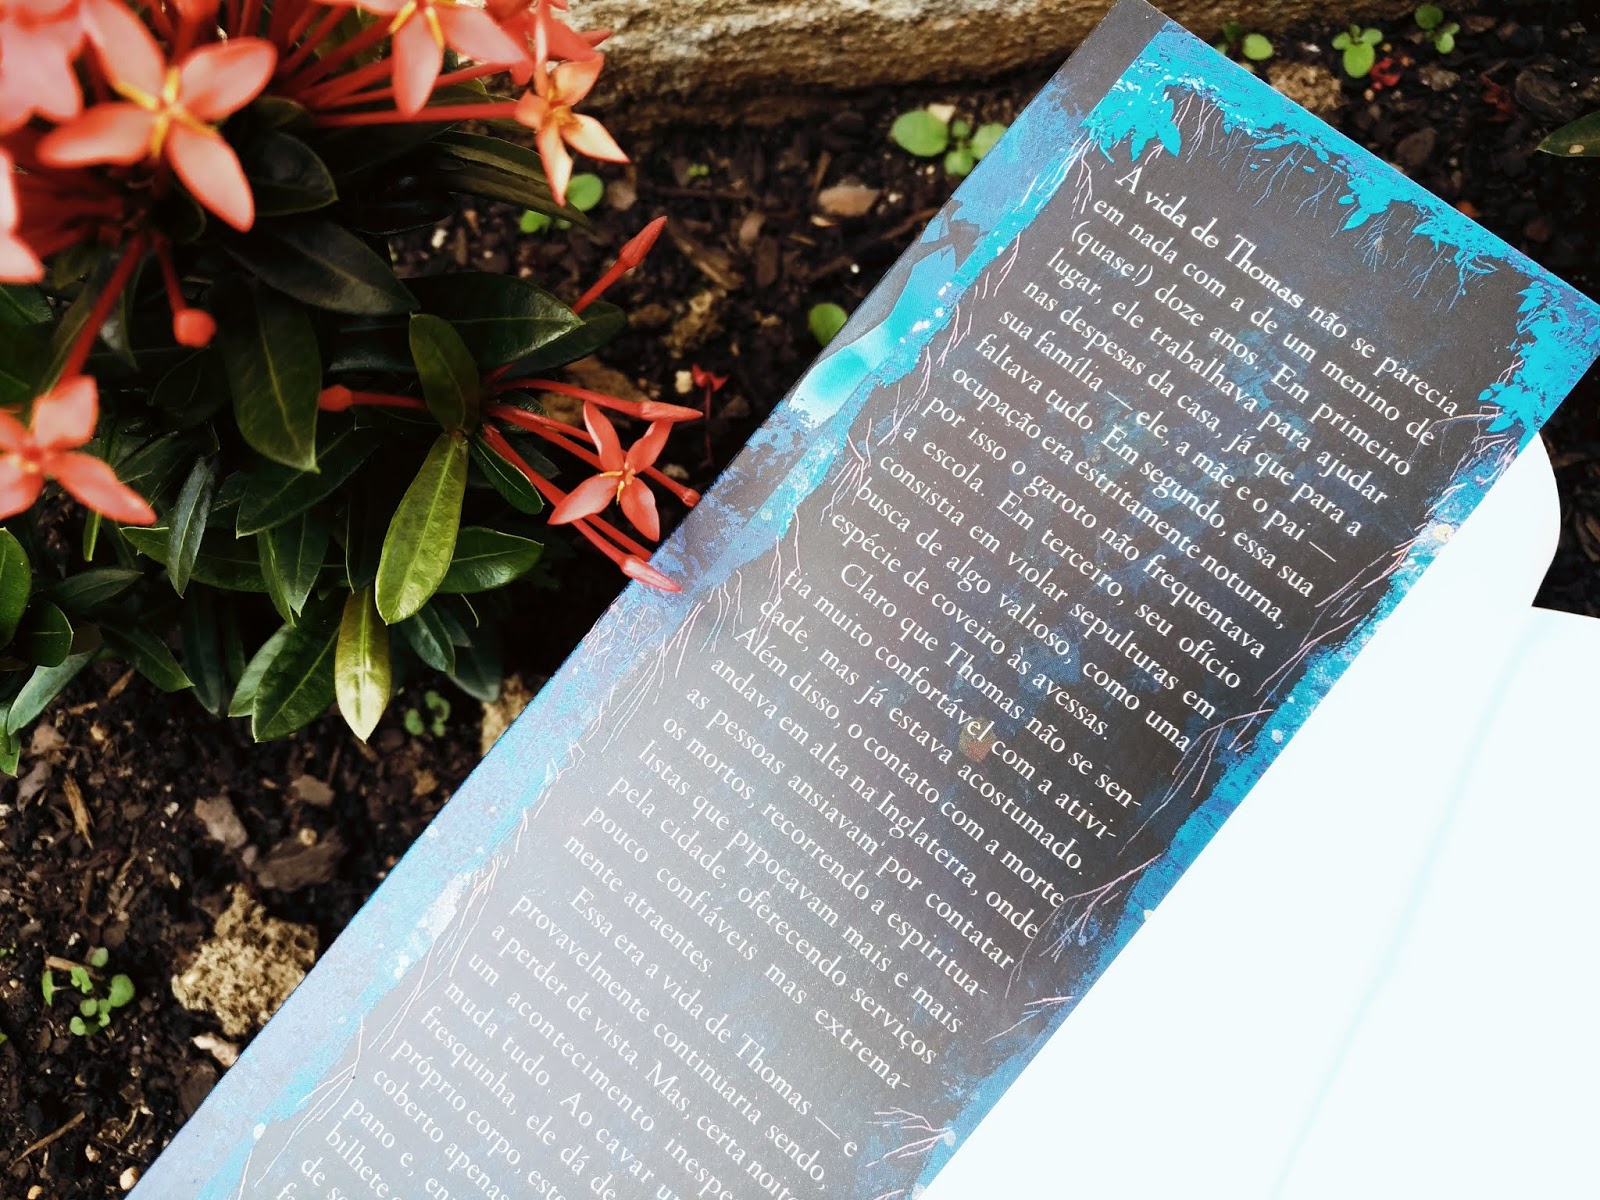 A vida de Thomas não se parecia
em nada com a de um menino de
(quase!) doze anos. Em primeiro
lugar, ele trabalhava para ajudar
nas despesas da casa, já que para a
sua família — ele, a mãe e o pai —
faltava tudo. Em segundo, essa sua
ocupação era estritamente noturna,
por isso o garoto não frequentava
a escola. Em terceiro, seu ofício
consistia em violar sepulturas em
busca de algo valioso, como uma
espécie de coveiro às avessas.
Claro que Thomas não se sen-
tia muito confortável com a ativi-
dade, mas já estava acostumado.
Além disso, o contato com a morte
andava em alta na Inglaterra, onde
as pessoas ansiavam por contatar
os mortos, recorrendo a espiritua-
listas que pipocavam mais e mais
pela cidade, oferecendo serviços
pouco confiáveis mas extrema-
mente atraentes.
Essa era a vida de Thomas — e
provavelmente continuaria sendo,
a perder de vista. Mas, certa noite
um acontecimento
muda tudo. Ao cavar
fresquinha, ele dá de
próprio corpo,
coberto apenas
pano e,
bilhete
de